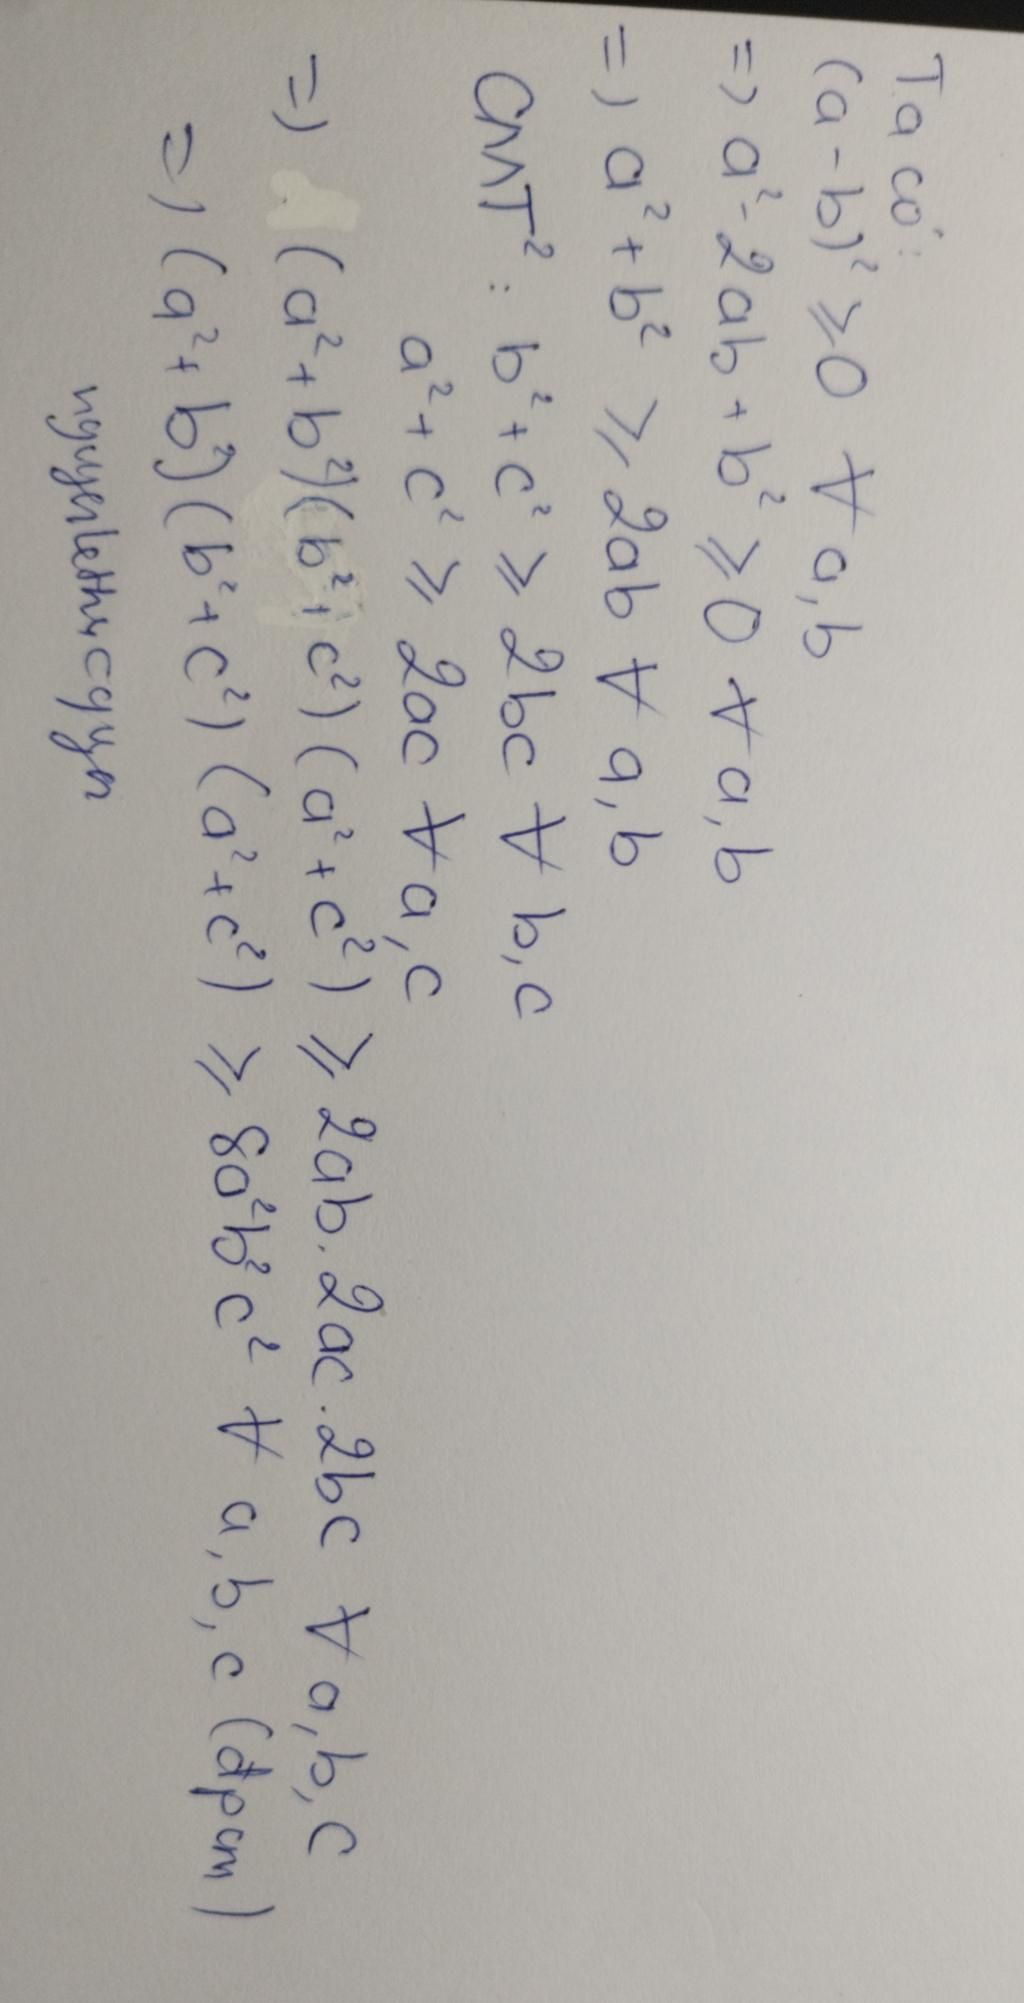 Ta có:
(a-b)² ≥ 0 ∀ a,b
=> a² - 2ab + b² ≥ 0 ∀ a,b
=> a² + b² ≥ 2ab ∀ a,b
CMT²: b² + c² ≥ 2bc ∀ b,c
a² + c² ≥ 2ac ∀ a,c
=> (a² + b²)(b² + c²)(a² + c²) ≥ 2ab.2ac.2bc ∀ a,b,c
=> (a² + b²)(b² + c²)(a² + c²) ≥ 8a²b²c² ∀ a,b,c (đpcm)